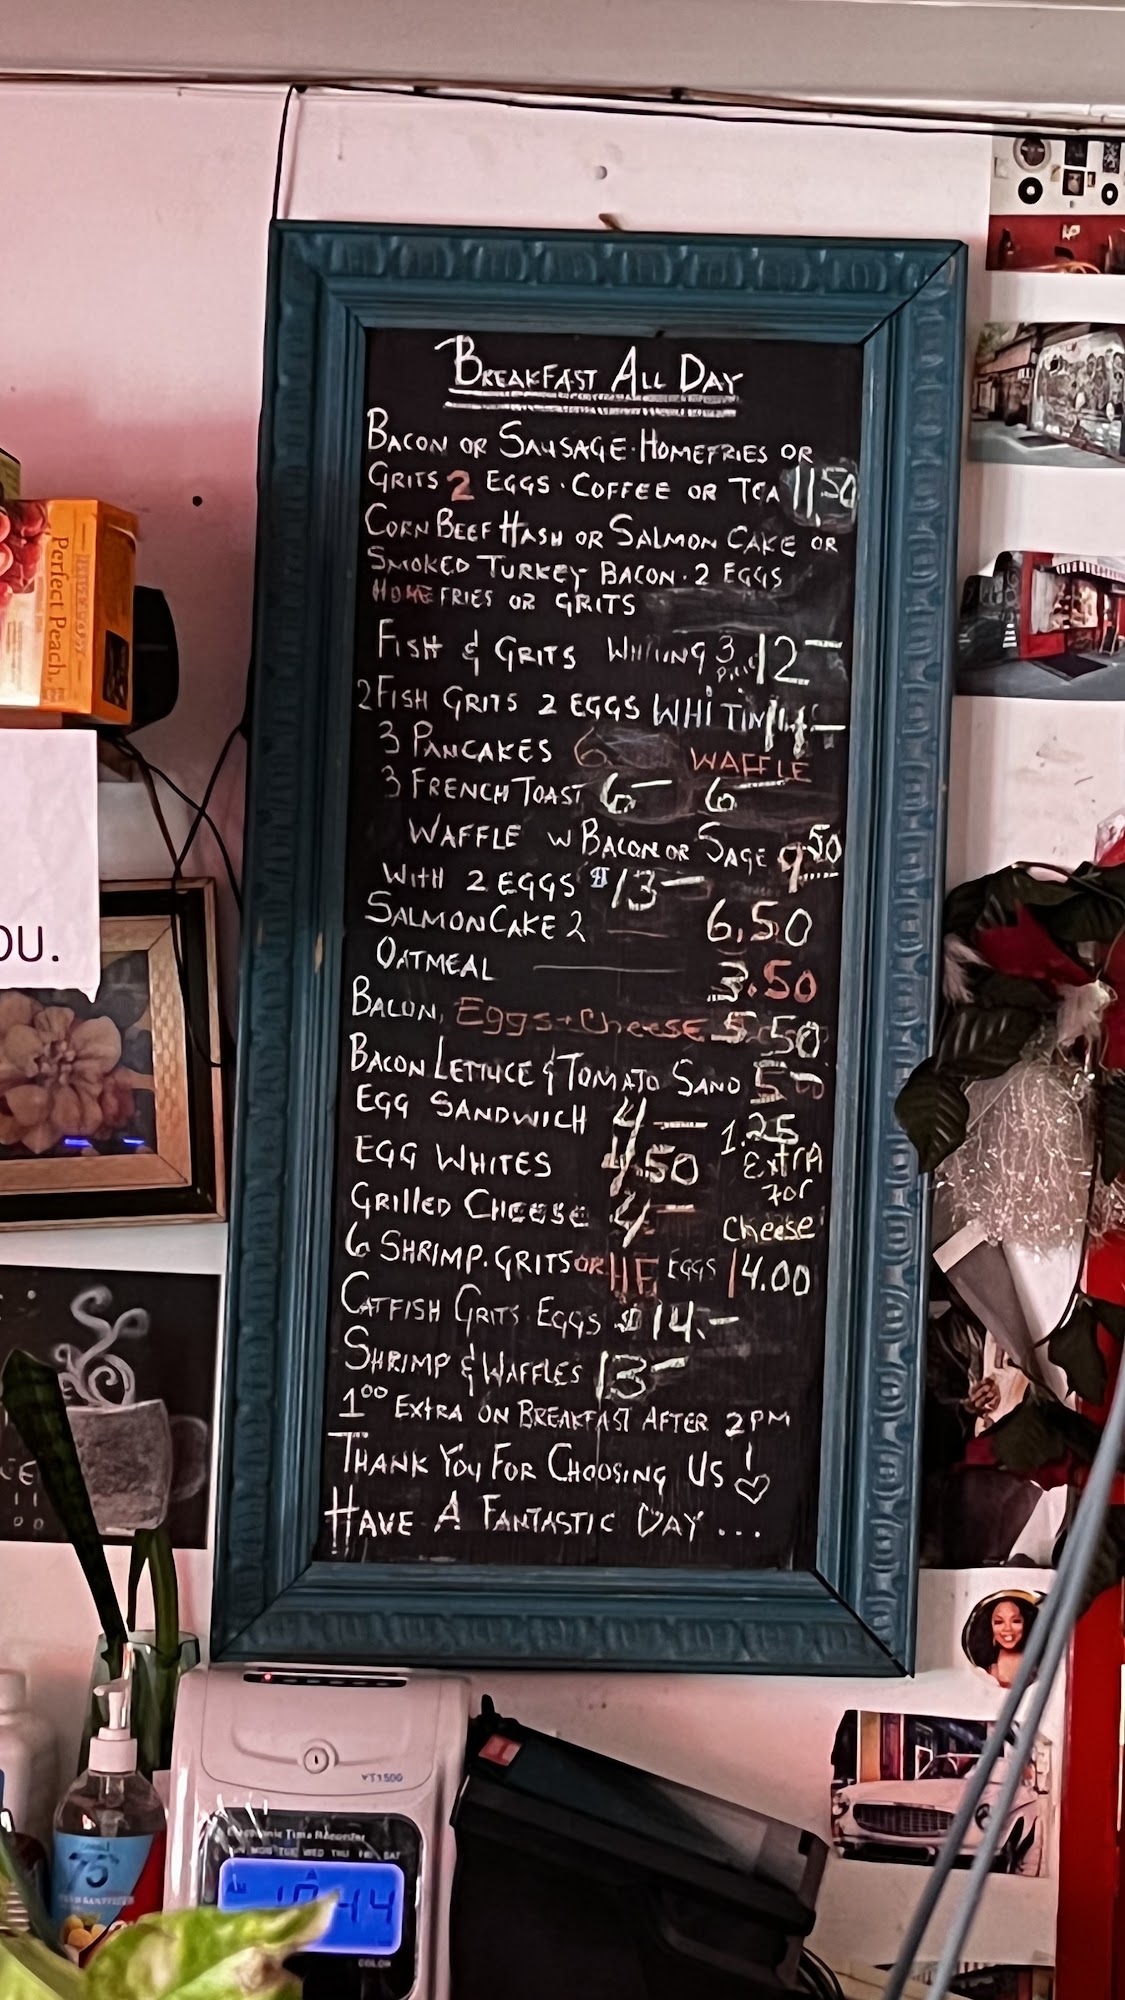 BREAKFAST ALL DAY
BACON OR SAUSAGE·HOMEFRIES OR
GRITS 2 EGGS·COFFEE OR TEA 11.50
CORN BEEF HASH OR SALMON CAKE OR
SMOKED TURKEY BACON·2 EGGS
HOMEFRIES OR GRITS
FISH & GRITS WHITING 3 12-
2 FISH GRITS 2 EGGS WHITIN 14-
3 PANCAKES 6 WAFFLE
3 FRENCH TOAST 6- 6
WAFFLE W BACON OR SAGE 9.50
WITH 2 EGGS $13-
SALMON CAKE 2 6.50
OATMEAL 3.50
BACON, Eggs + Cheese 5.50
BACON LETTUCE & TOMATO SAND 5⁰⁰
EGG SANDWICH 4- 1.25
EGG WHITES 4.50 Extra
for
GRILLED CHEESE 4- Cheese
6 SHRIMP. GRITS OR HF EGGS 14.00
CATFISH GRITS EGGS $14.-
SHRIMP & WAFFLES 13-
1⁰⁰ EXTRA ON BREAKFAST AFTER 2PM
THANK YOU FOR CHOOSING US!
HAVE A FANTASTIC DAY...
Perfect Peach.
OU.
YT1500
Electronic Time Recorder
SUN MON TUE WED THU FRI SAT
AM 10:44
COLOR